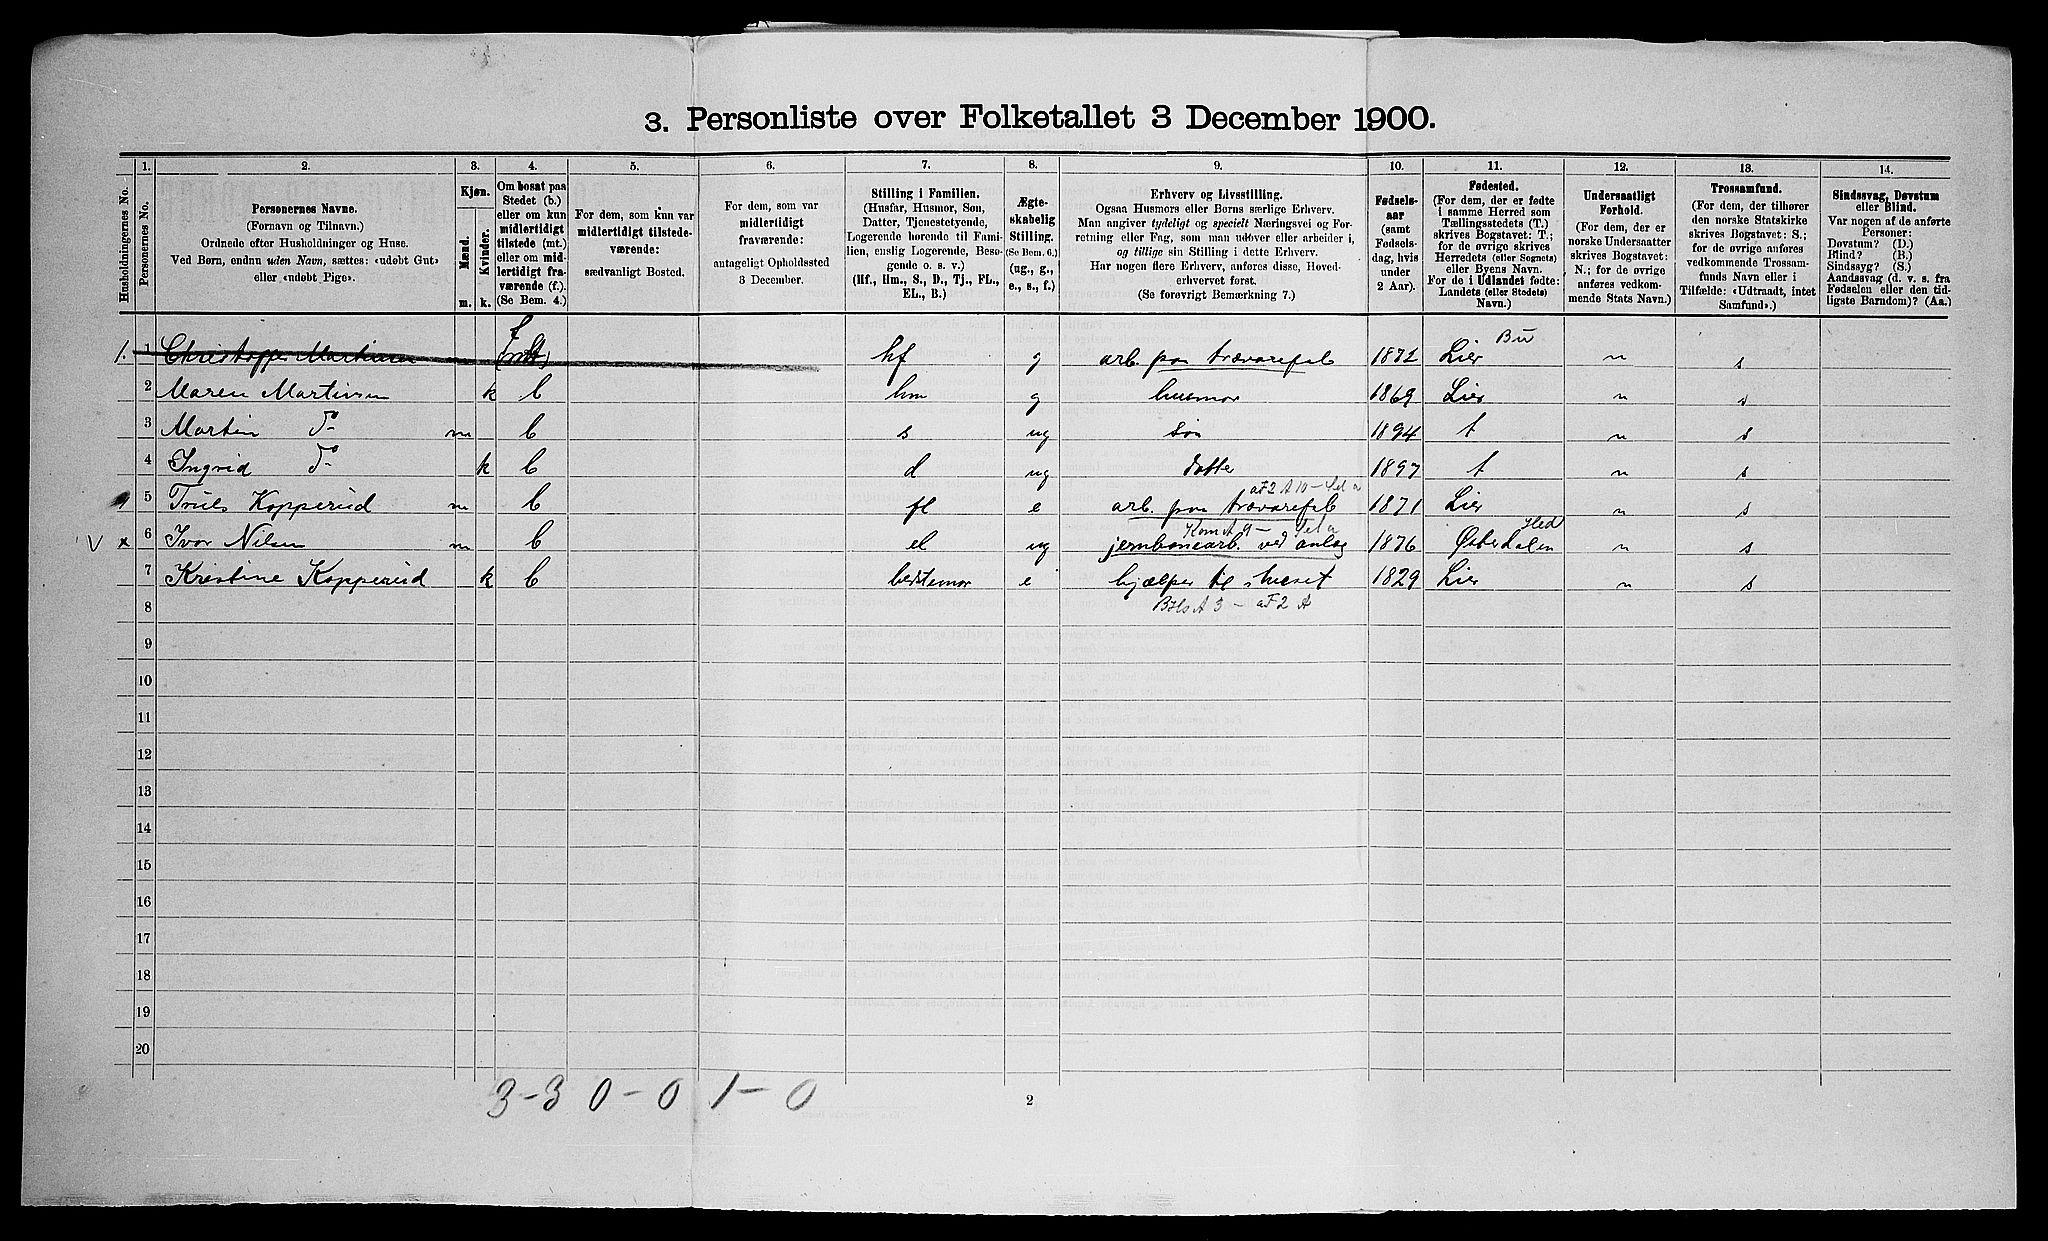 3. Personliste over Folketallet 3 December 1900.
1. 2. 3. 4. 5. 6. 7. 8. 9. 10. 11. 12. 13. 14.
Husholdningernes No.
Personernes No.
Personernes Navne.
(Fornavn og Tilnavn.)
Ordnede efter Husholdninger og Huse.
Ved Børn, endnu uden Navn, sættes: «udøbt Gut»
eller «udøbt Pige».
Kjøn.
Mænd.
Kvinder.
m. k.
Om bosat paa
Stedet (b.)
eller om kun
midlertidigt
tilstede (mt.)
eller om mid-
lertidigt fra-
værende (f.)
(Se Bem. 4.)
For dem, som kun var
midlertidigt tilstede-
værende:
sædvanligt Bosted.
For dem, som var
midlertidigt
fraværende:
antageligt Opholdssted
3 December.
Stilling i Familien.
(Husfar, Husmor, Søn,
Datter, Tjenestetyende,
Logerende hørende til Fami-
lien, enslig Logerende, Besø-
gende o. s. v.)
(Hf., Hm., S., D., Tj., FL.,
EL., B.)
Ægte-
skabelig
Stilling.
(Se Bem. 6.)
(ug., g.,
e., s., f.)
Erhverv og Livsstilling.
Ogsaa Husmors eller Børns særlige Erhverv.
Man angiver tydeligt og specielt Næringsvei og For-
retning eller Fag, som man udøver eller arbeider i,
og tillige sin Stilling i dette Erhverv.
Har nogen flere Erhverv, anføres disse, Hoved-
erhvervet først.
(Se forøvrigt Bemærkning 7.)
Fødsels-
aar
(samt
Fødsels-
dag, hvis
under
2 Aar).
Fødested.
(For dem, der er fødte
i samme Herred som
Tællingsstedets (T.)
skrives Bogstavet: T.;
for de øvrige skrives
Herredets (eller Sognets)
eller Byens Navn.
For de i Udlandet fødte:
Landets (eller Stedets)
Navn.)
Undersaatligt
Forhold.
(For dem, der er
norske Undersaatter
skrives Bogstavet:
N.; for de øvrige
anføres vedkom-
mende Stats Navn.)
Trossamfund.
(For dem, der tilhører
den norske Statskirke
skrives Bogstavet: S.;
for de øvrige anføres
vedkommende Trossam-
funds Navn eller i
Tilfælde: «Udtraadt, intet
Samfund».)
Sindssvag, Døvstum
eller Blind.
Var nogen af de anførte
Personer:
Døvstum? (D.)
Blind? (B.)
Sindssyg? (S.)
Aandssvag (d. v. s. fra
Fødselen eller den tid-
ligste Barndom)? (Aa.)
f Bu
1. 1 Christoffer Martinsen m (mt) hf g arb. paa trævarefab 1872 Lier n s
2 Maren Martinsen k b hm g husmor 1869 Lier n s
3 Martin Do m b s ug søn 1894 t n s
4 Ingrid Do k b d ug datter 1897 t n s
5 Truls Kopperud m b fl e arb. paa trævarefab 1871 Lier n s
Hed
v x 6 Ivar Nilsen m b el ug jernbanearb. ved anlæg 1876 Østerdalen n s
7 Kristine Kopperud k b bedstemor e hjælper til i huset 1829 Lier n s
8
9
10
11
12
13
14
15
16
17
18
19
20
3 - 3 0 - 0 1 - 0
2